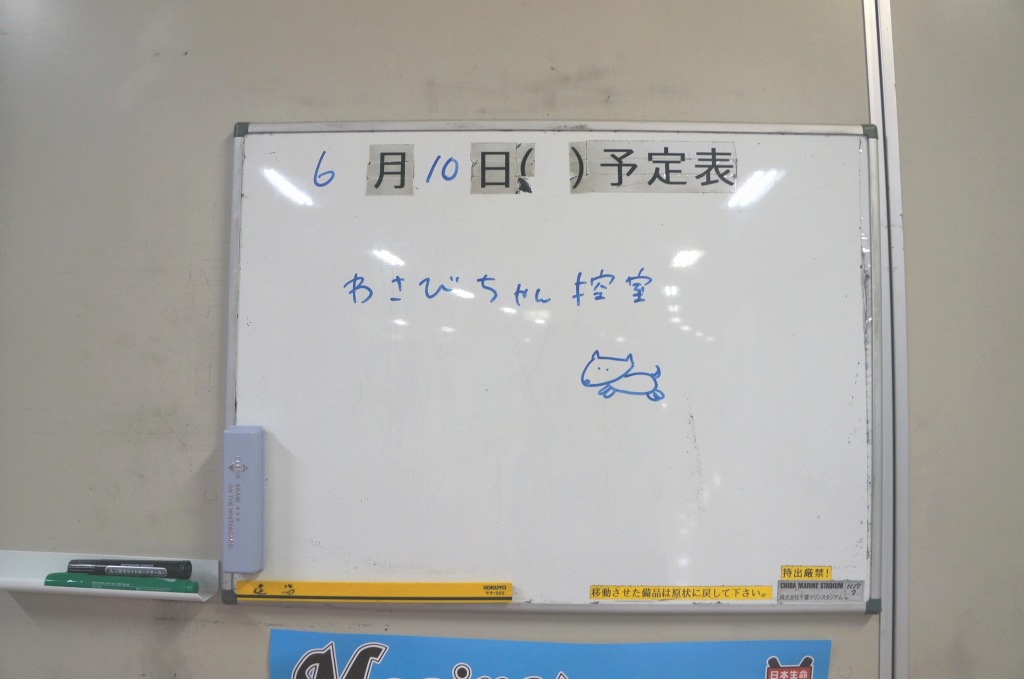 6月10日( )予定表
わさびちゃん 控室
KOKUYO
移動させた備品は原状に戻して下さい。
持出厳禁!
CHIBA MARINE STADIUM
株式会社千葉マリンスタジアム
Marines
日本生命